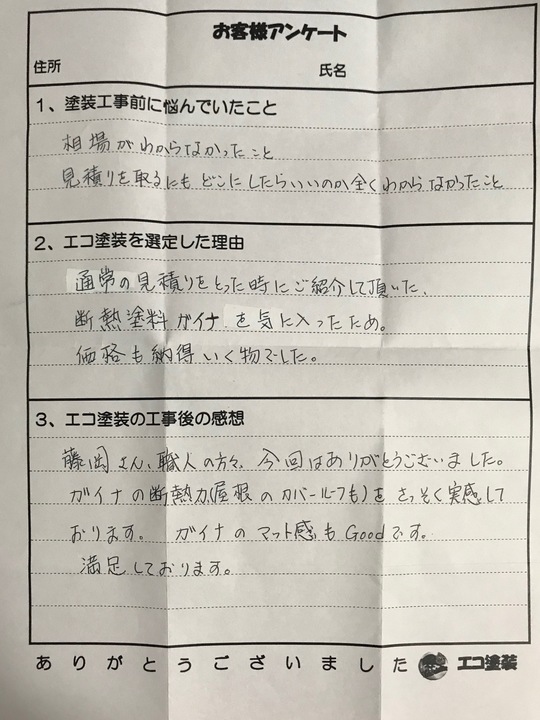 お客様アンケート
住所 氏名
1、塗装工事前に悩んでいたこと
相場がわからなかったこと
見積りを取るにもどこにしたらいいのか全くわからなかったこと
2、エコ塗装を選定した理由
通常の見積りをとった時にご紹介して頂いた、
断熱塗料ガイナを気に入ったため。
価格も納得いく物でした。
3、エコ塗装の工事後の感想
藤岡さん、職人の方々、今回はありがとうございました。
ガイナの断熱力(屋根のカバールーフも)をさっそく実感して
おります。 ガイナのマット感もGoodです。
満足しております。
ありがとうございました エコ塗装